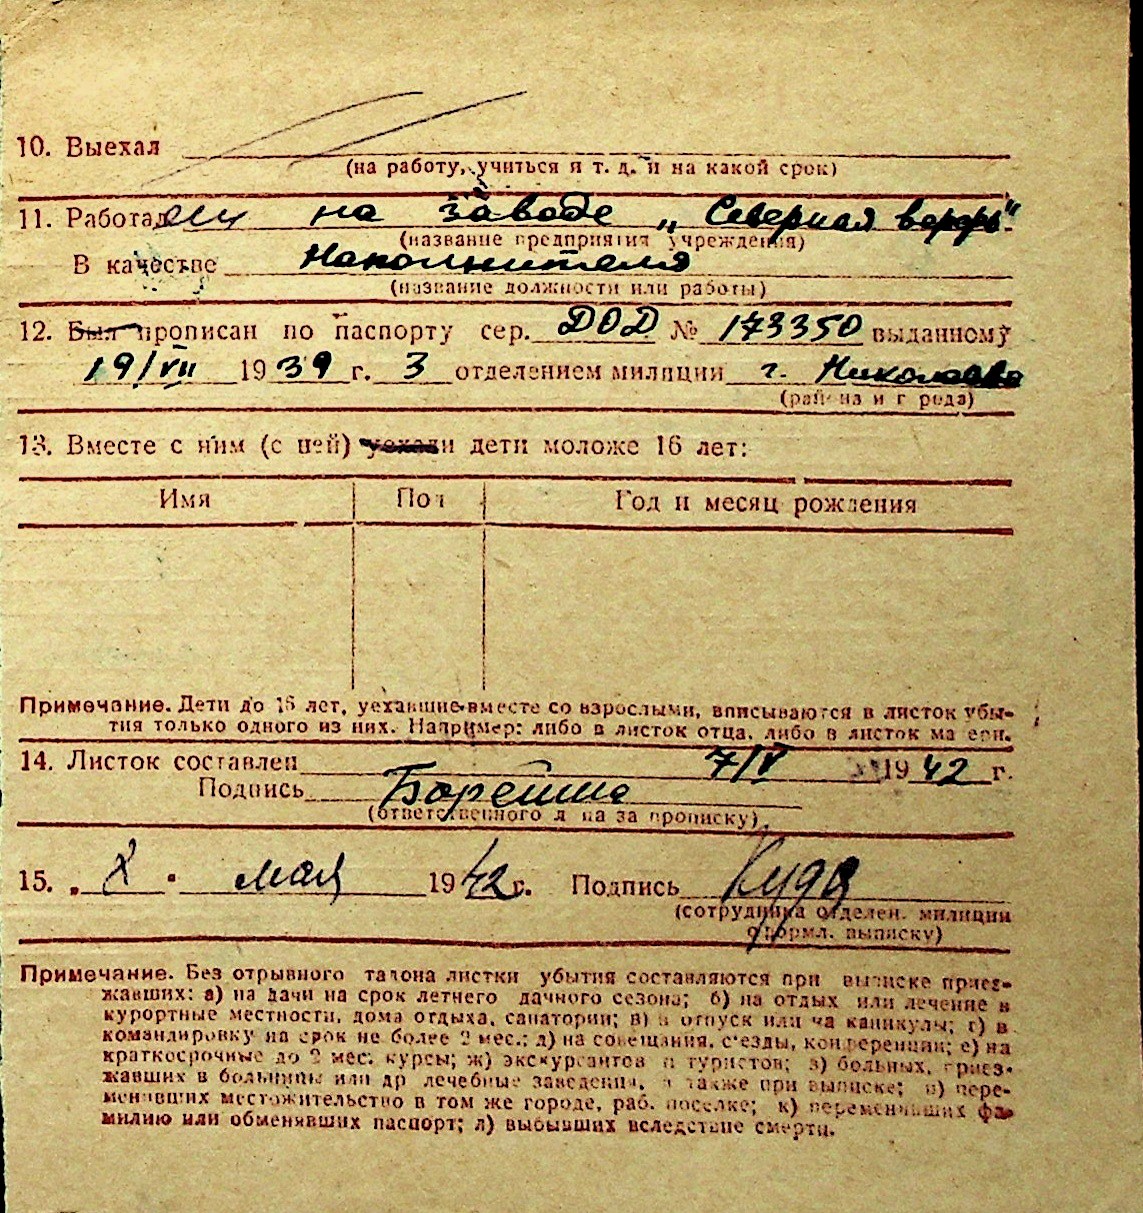 10. Выехал
(на работу, учиться и т. д. и на какой срок)
11. Работал на заводе „Северная верфь"
(название предприятия учреждения)
В качестве Наполнителя
(название должности или работы)
12. Был прописан по паспорту сер. ДОД № 173350 выданному
19/VII 1939 г. 3 отделением милиции г. Николаева
(района и города)
13. Вместе с ним (с ней) уехали дети моложе 16 лет:
Имя Пол Год и месяц рождения
Примечание. Дети до 16 лет, уехавшие вместе со взрослыми, вписываются в листок убы-
тия только одного из них. Например: либо в листок отца, либо в листок матери.
14. Листок составлен 7/V 1942 г.
Подпись
(ответственного лица за прописку)
15. „8" мая 1942 г. Подпись
(сотрудника отделен. милиции
оформл. выписку)
Примечание. Без отрывного талона листки убытия составляются при выписке приез-
жавших: а) на дачи на срок летнего дачного сезона; б) на отдых или лечение в
курортные местности, дома отдыха, санатории; в) в отпуск или на каникулы; г) в
командировку на срок не более 2 мес.; д) на совещания, съезды, конференции; е) на
краткосрочные до 2 мес. курсы; ж) экскурсантов и туристов; з) больных, приез-
жавших в больницы или др лечебные заведения, а также при выписке; и) пере-
менивших местожительство в том же городе, раб. поселке; к) переменивших фа-
милию или обменявших паспорт; л) выбывших вследствие смерти.